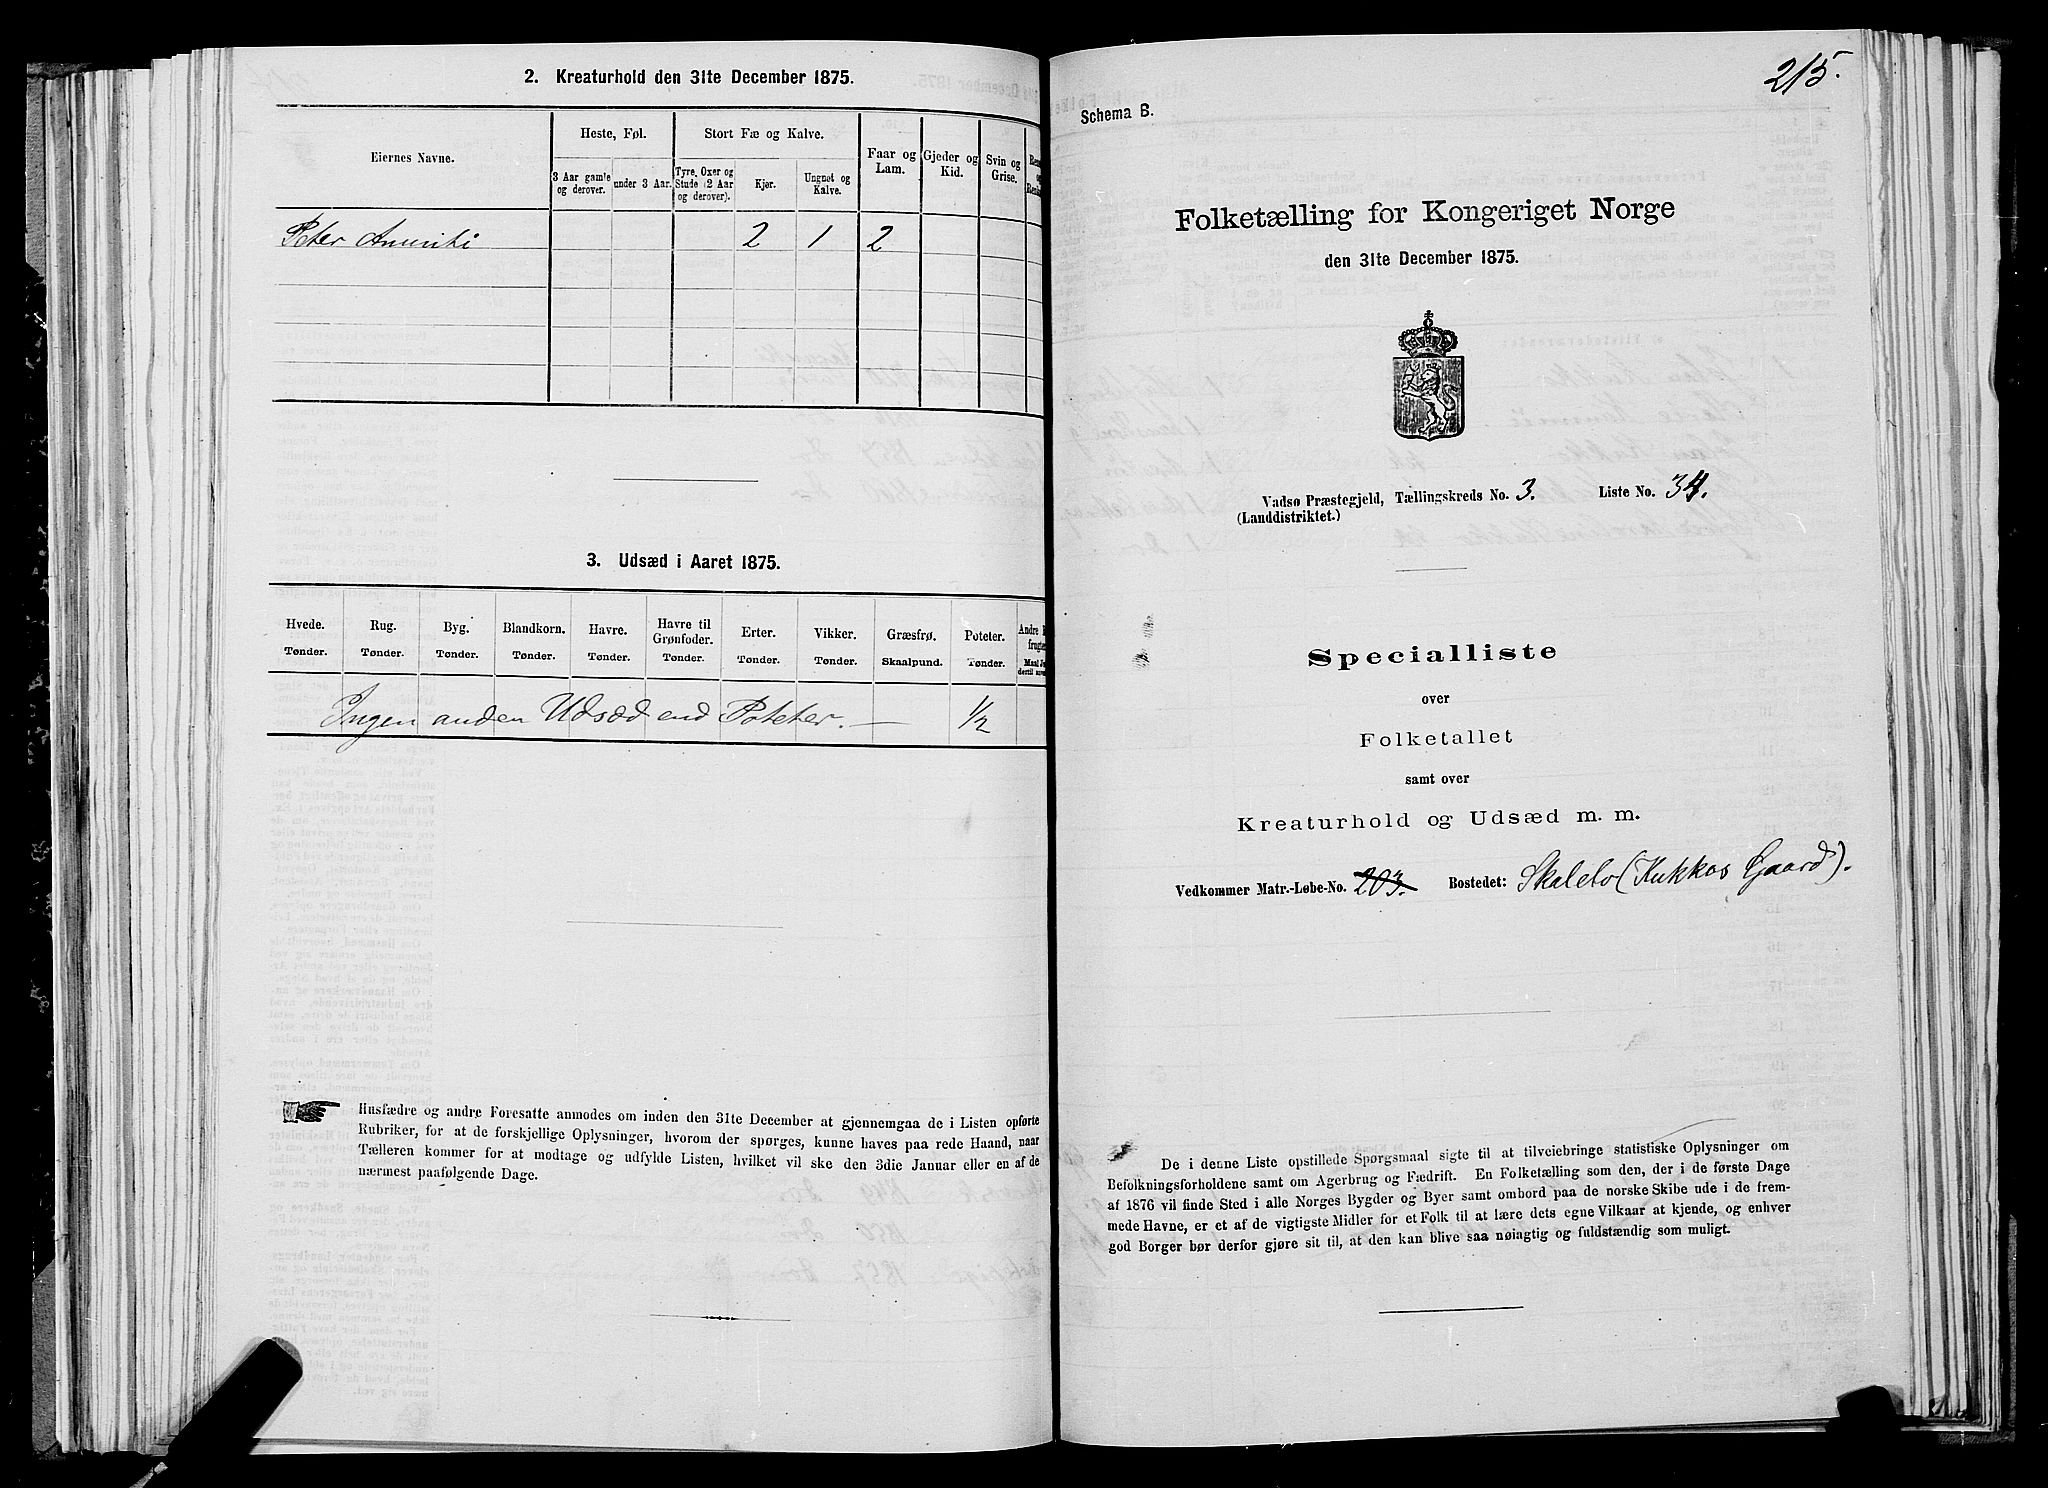 2. Kreaturhold den 31te December 1875.
Eiernes Navne.
Heste, Føl.
Stort Fæ og Kalve.
Faar og Lam.
Gjeder og Kid.
Svin og Grise.
3 Aar gamle og derover.
under 3 Aar.
Tyre, Oxer og Stude (2 Aar og derover).
Kjør.
Ungnøt og Kalve.
Peter 2 1 2
3. Udsæd i Aaret 1875.
Hvede. Rug. Byg. Blandkorn. Havre. Havre til Grønfoder. Erter. Vikker. Græsfrø. Poteter.
Tønder. Tønder. Tønder. Tønder. Tønder. Tønder. Tønder. Tønder. Skaalpund. Tønder.
Ingen anden Udsæd end Poteter. — 1/2
Husfædre og andre Foresatte anmodes om inden den 31te December at gjennemgaa de i Listen opførte
Rubriker, for at de forskjellige Oplysninger, hvorom der spørges, kunne haves paa rede Haand, naar
Tælleren kommer for at modtage og udfylde Listen, hvilket vil ske den 3die Januar eller en af de
nærmest paafølgende Dage.
215.
Schema B.
Folketælling for Kongeriget Norge
den 31te December 1875.
Vadsø Præstegjeld, Tællingskreds No. 3. Liste No. 34.
(Landdistriktet.)
Specialliste
over
Folketallet
samt over
Kreaturhold og Udsæd m. m.
Vedkommer Matr.-Løbe-No. 203. Bostedet: Skalelv (Kukkos Gaard).
De i denne Liste opstillede Spørgsmaal sigte til at tilveiebringe statistiske Oplysninger om
Befolkningsforholdene samt om Agerbrug og Fædrift. En Folketælling som den, der i de første Dage
af 1876 vil finde Sted i alle Norges Bygder og Byer samt ombord paa de norske Skibe ude i de frem-
mede Havne, er et af de vigtigste Midler for et Folk til at lære dets egne Vilkaar at kjende, og enhver
god Borger bør derfor gjøre sit til, at den kan blive saa nøiagtig og fuldstændig som muligt.